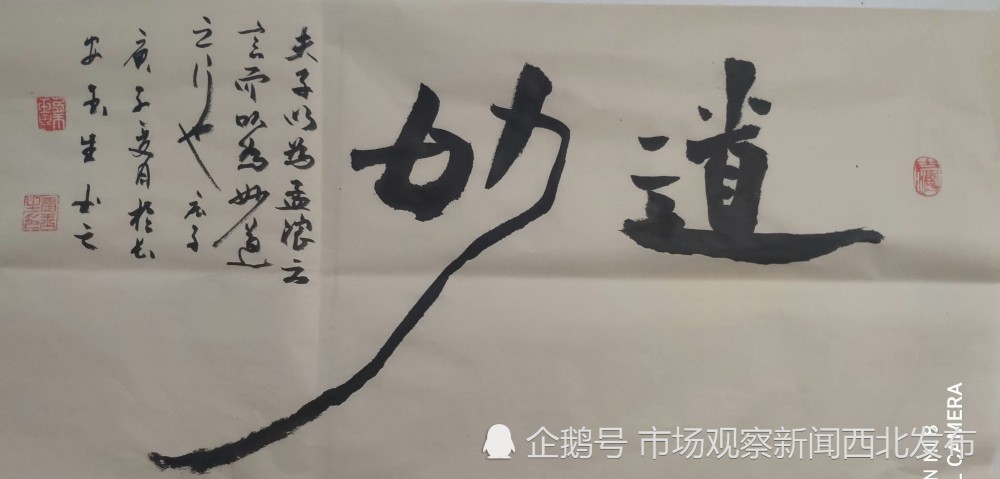 道妙
夫子以為孟浪之
言而為妙道
之行也 庄子
庚子夏月於长
安玉生书之
企鹅号 市场观察新闻西北发布
CAMERA